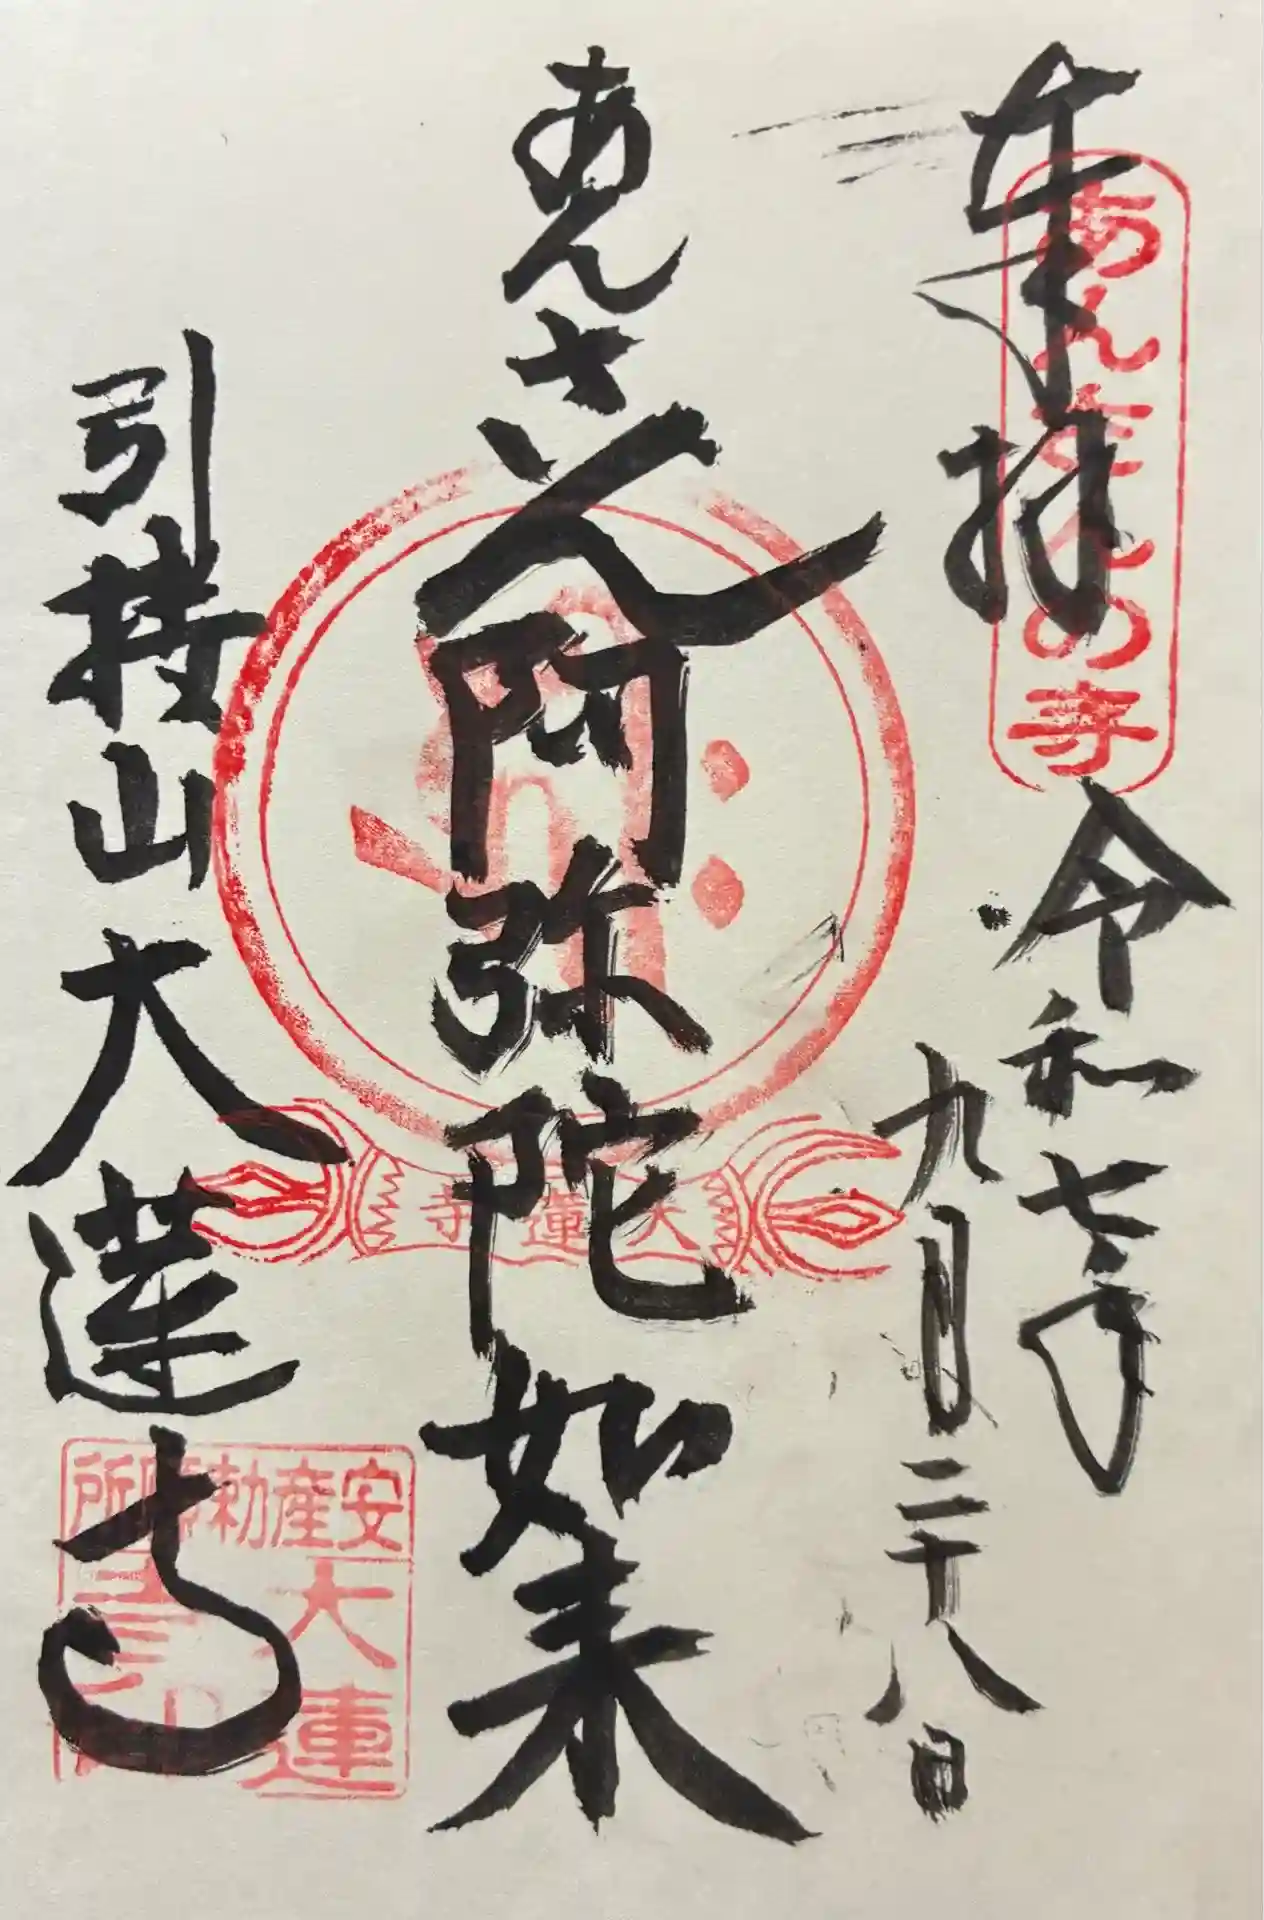 奉拝
あんさんの寺
令和七年
九月二十八日
あんさん阿弥陀如来
大蓮寺
引接山大蓮寺
安産勅願所
大蓮
寺印